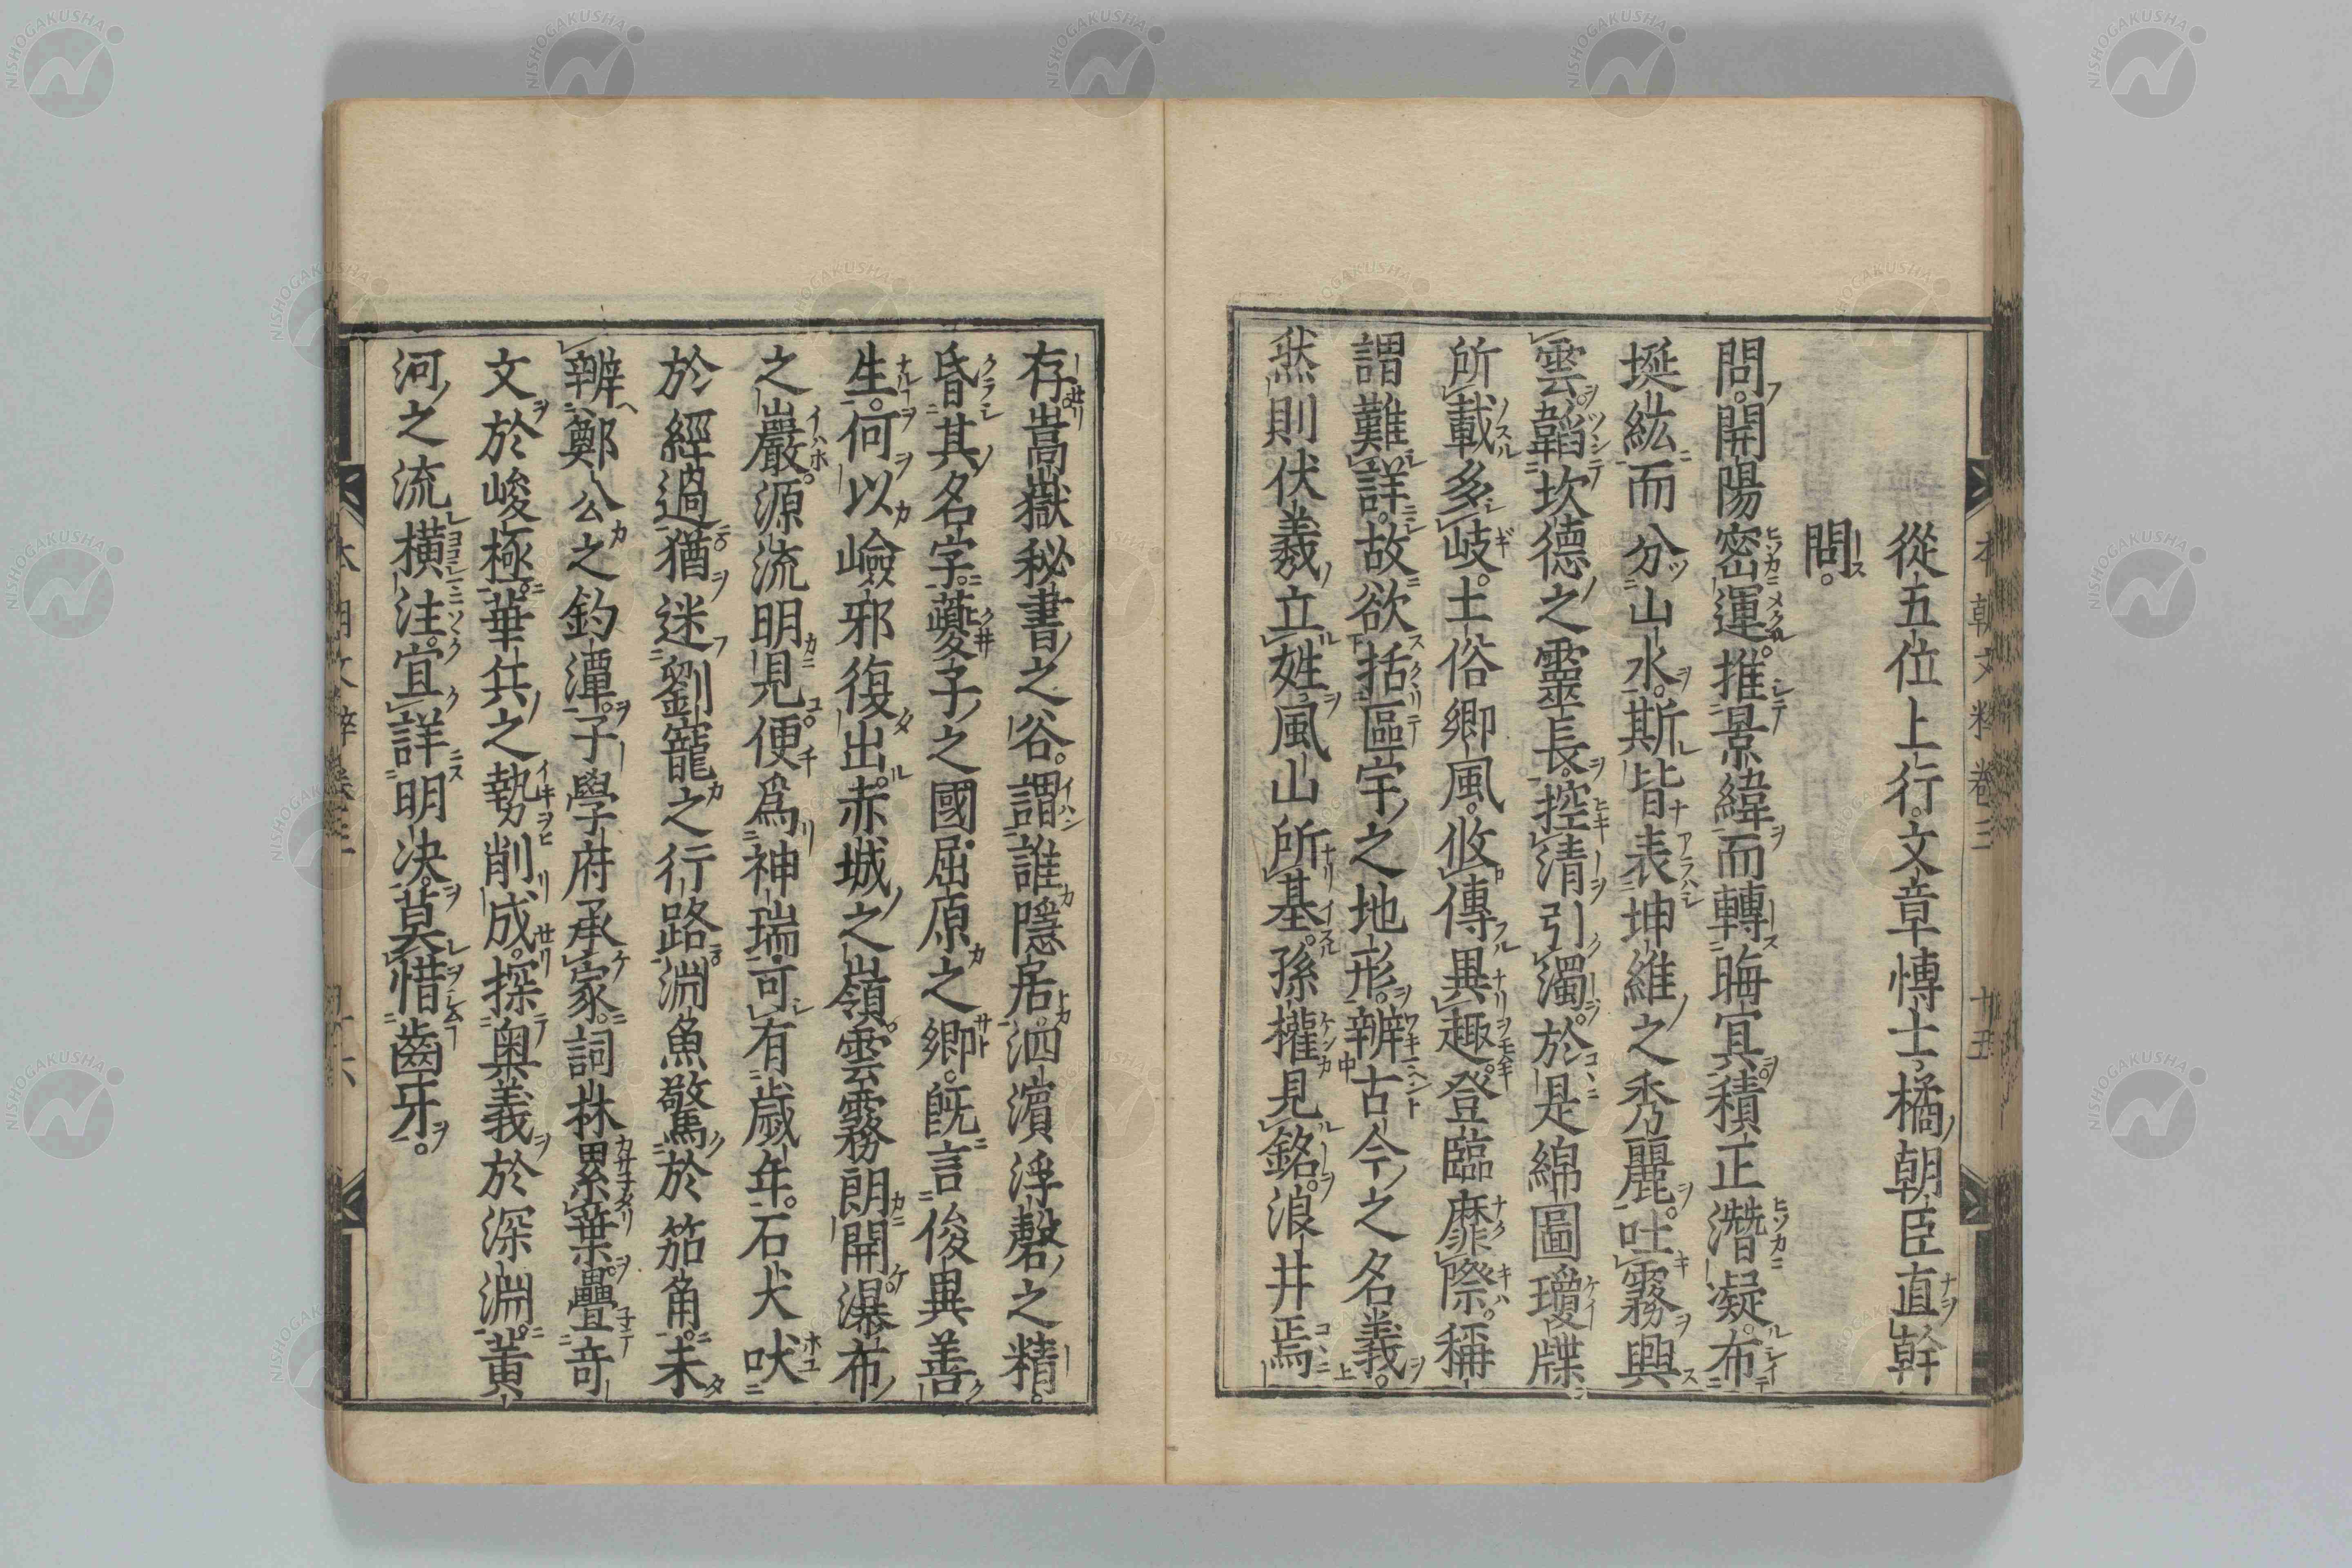 從五位上行文章博士橘朝臣直幹
問。
問。開陽密運。推景緯而轉晦冥。積正潛凝。布
埏紘而分山水。斯皆表坤維之秀麗。吐霧興
雲。韜坎德之靈長。控清引濁。於是綿圖瓊牒
所載多岐。土俗鄉風。攸傳異趣。登臨靡際。稱
謂難詳。故欲括區宇之地形。辨古今之名義。
然則伏羲立姓。風山所基。孫權見銘。浪井焉
存。嵩嶽秘書之谷。謂誰隱居。泗濱浮磬之精。
昏其名字。夔子之國屈原之鄉。既言俊異善
生。何以嶮邪復出。赤城之嶺。雲霧朗開。瀑布
之巖。源流明見。便爲神瑞。可有歲年。石犬吠
於經過。猶迷劉寵之行路。淵魚驚於笳角。未
辨鄭公之釣潭。子學府承家。詞林累葉。疊奇
文於峻極。華共之勢削成。探奧義於深淵。黃
河之流橫注。宜詳明決。莫惜齒牙。
本朝文粹卷三 十五
本朝文粹卷三 十六